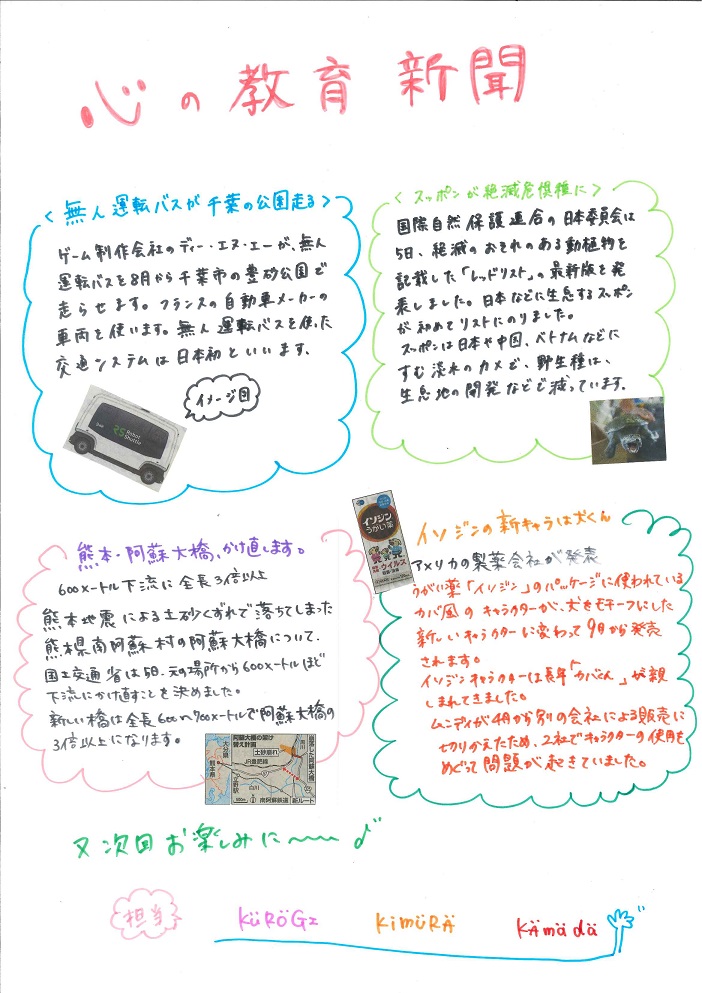 心の教育新聞
<無人運転バスが千葉の公園走る>
ゲーム制作会社のディー・エヌ・エーが、無人
運転バスを8月から千葉市の豊砂公園で
走らせます。フランスの自動車メーカーの
車両を使います。無人運転バスを使った
交通システムは日本初といいます、
イメージ図
Robot
Shuttle
<スッポンが絶滅危惧種に>
国際自然保護連合の日本委員会は
5日、絶滅のおそれのある動植物を
記載した「レッドリスト」の最新版を発
表しました。日本などに生息するスッポン
が初めてリストにのりました。
スッポンは日本や中国、ベトナムなどに
すむ淡水のカメで、野生種は、
生息地の開発などで減っています.
熊本・阿蘇大橋、かけ直します。
600メートル下流に全長3倍以上
熊本地震による土砂くずれで落ちてしまった
熊本県南阿蘇村の阿蘇大橋について、
国土交通省は5日、元の場所から600メートルほど
下流にかけ直すことを決めました。
新しい橋は全長600〜700メートルで阿蘇大橋の
3倍以上になります。
阿蘇大橋の架け
替え計画
土砂崩れ
JR豊肥線
大分県
熊本県
立野駅
白川
黒川
崩落した阿蘇大橋
南阿蘇鉄道
新ルート
イソジン
うがい薬
ウイルス
イソジンの新キャラは犬くん
アメリカの製薬会社が発売
うがい薬「イソジン」のパッケージに使われている
カバ風のキャラクターが、犬をモチーフにした
新しいキャラクターに変わって9月から発売
されます。
イソジンキャラクターは長年「カバくん」が親
しまれてきました。
ムンディが4月から別の会社による販売に
切りかえたため、2社でキャラクターの使用を
めぐって問題が起きていました。
又次回お楽しみに〜〜♪
担当
KüRöGi
KimüRÄ
Kämädä